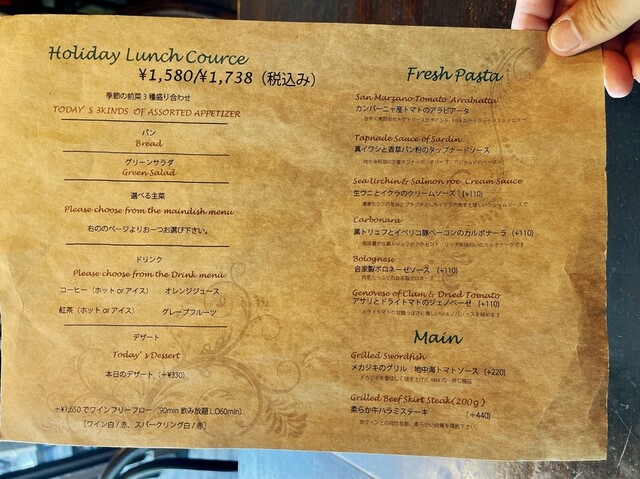 Holiday Lunch Cource
¥1,580/¥1,738（税込み）
季節の前菜３種盛り合わせ
TODAY'S 3KINDS OF ASSORTED APPETIZER
パン
Bread
グリーンサラダ
Green Salad
選べる主菜
Please choose from the maindish menu
右ののページよりお一つお選び下さい。
ドリンク
Please choose from the Drink menu
コーヒー（ホット or アイス） オレンジジュース
紅茶（ホット or アイス） グレープフルーツ
デザート
Today's Dessert
本日のデザート（+¥330）
+¥1,650でワインフリーフロー（90min 飲み放題 LO60min）
［ワイン白 / 赤、スパークリング白 / 赤］
Fresh Pasta
San Marzano Tomato Arrabiatta
カンパーニャ産トマトのアラビアータ
Tapnade Sauce of Sardin
真イワシと香草パン粉のタップナードソース
Sea Urchin & Salmon roe Cream Sauce
生ウニとイクラのクリームソース (+110)
Carbonara
黒トリュフとイベリコ豚ベーコンのカルボナーラ (+110)
Bolognese
自家製ボロネーゼソース (+110)
Genovese of Clam & Dried Tomato
アサリとドライトマトのジェノベーゼ (+110)
Main
Grilled Swordfish
メカジキのグリル 地中海トマトソース (+220)
Grilled Beef Skirt Steak(200g)
柔らか牛ハラミステーキ (+440)